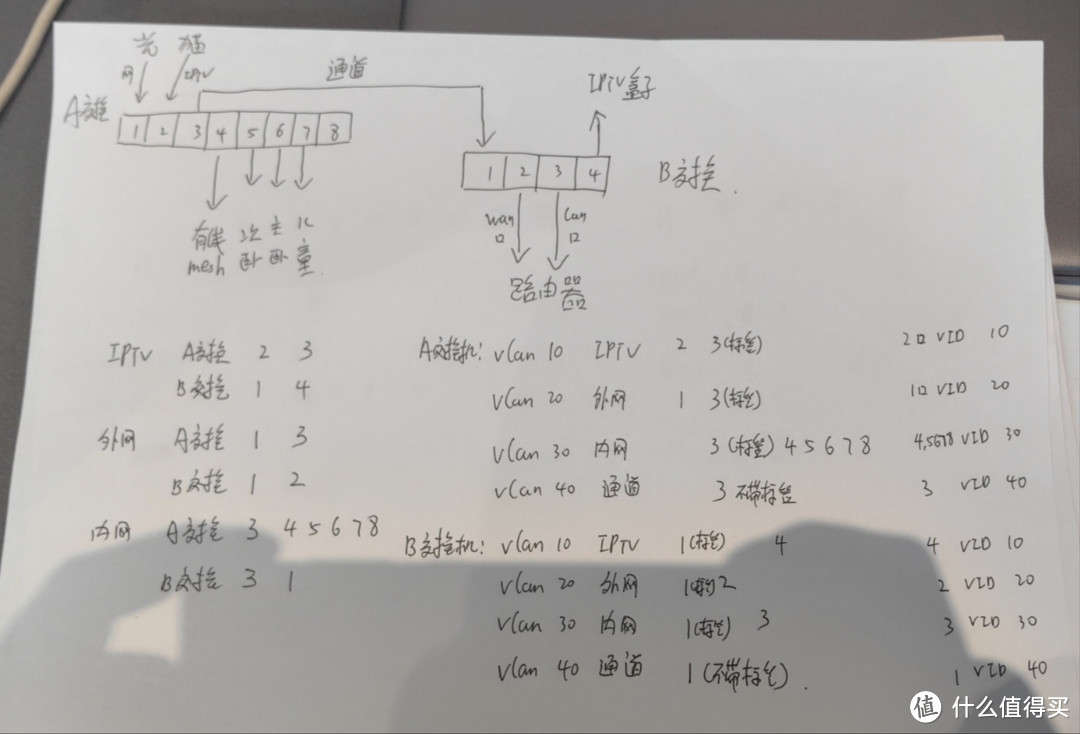 光 猫
网 IPTV 通道 IPTV盒子
A交换 1 2 3 4 5 6 7 8
1 2 3 4 B交换.
wan口 Lan口
有线mesh 次卧 主卧 儿童
路由器
IPTV A交换 2 3
B交换 1 4
外网 A交换 1 3
B交换 1 2
内网 A交换 3 4 5 6 7 8
B交换 3 1
A交换机: vlan 10 IPTV 2 3(标签) 2口 VID 10
vlan 20 外网 1 3(标签) 1口 VID 20
vlan 30 内网 3(标签) 4 5 6 7 8 4,5678 VID 30
vlan 40 通道 3 不带标签 3 VID 40
B交换机: vlan 10 IPTV 1(标签) 4 4 VID 10
vlan 20 外网 1(标签) 2 2 VID 20
vlan 30 内网 1(标签) 3 3 VID 30
vlan 40 通道 1(不带标签). 1 VID 40
值 什么值得买